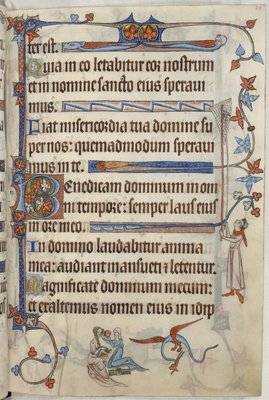 ter est.
Quia in eo letabitur cor nostrum
et in nomine sancto eius speraui
mus.
Fiat misericordia tua domine su
per nos: quemadmodum speraui
mus in te.
Benedicam dominum in om
ni tempore: semper laus eius
in ore meo.
In domino laudabitur anima
mea: audiant mansueti et letentur.
Magnificate dominum mecum:
et exaltemus nomen eius in idip